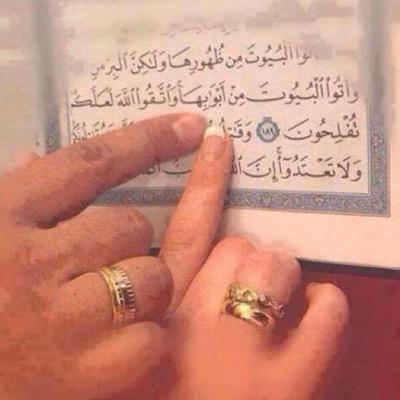 الْبُيُوتَ مِن ظُهُورِهَا وَلَٰكِنَّ الْبِرَّ مَنِ
وَأْتُوا الْبُيُوتَ مِنْ أَبْوَابِهَا وَاتَّقُوا اللَّهَ لَعَلَّكُمْ
تُفْلِحُونَ ١٨٩
وَلَا تَعْتَدُوا إِنَّ